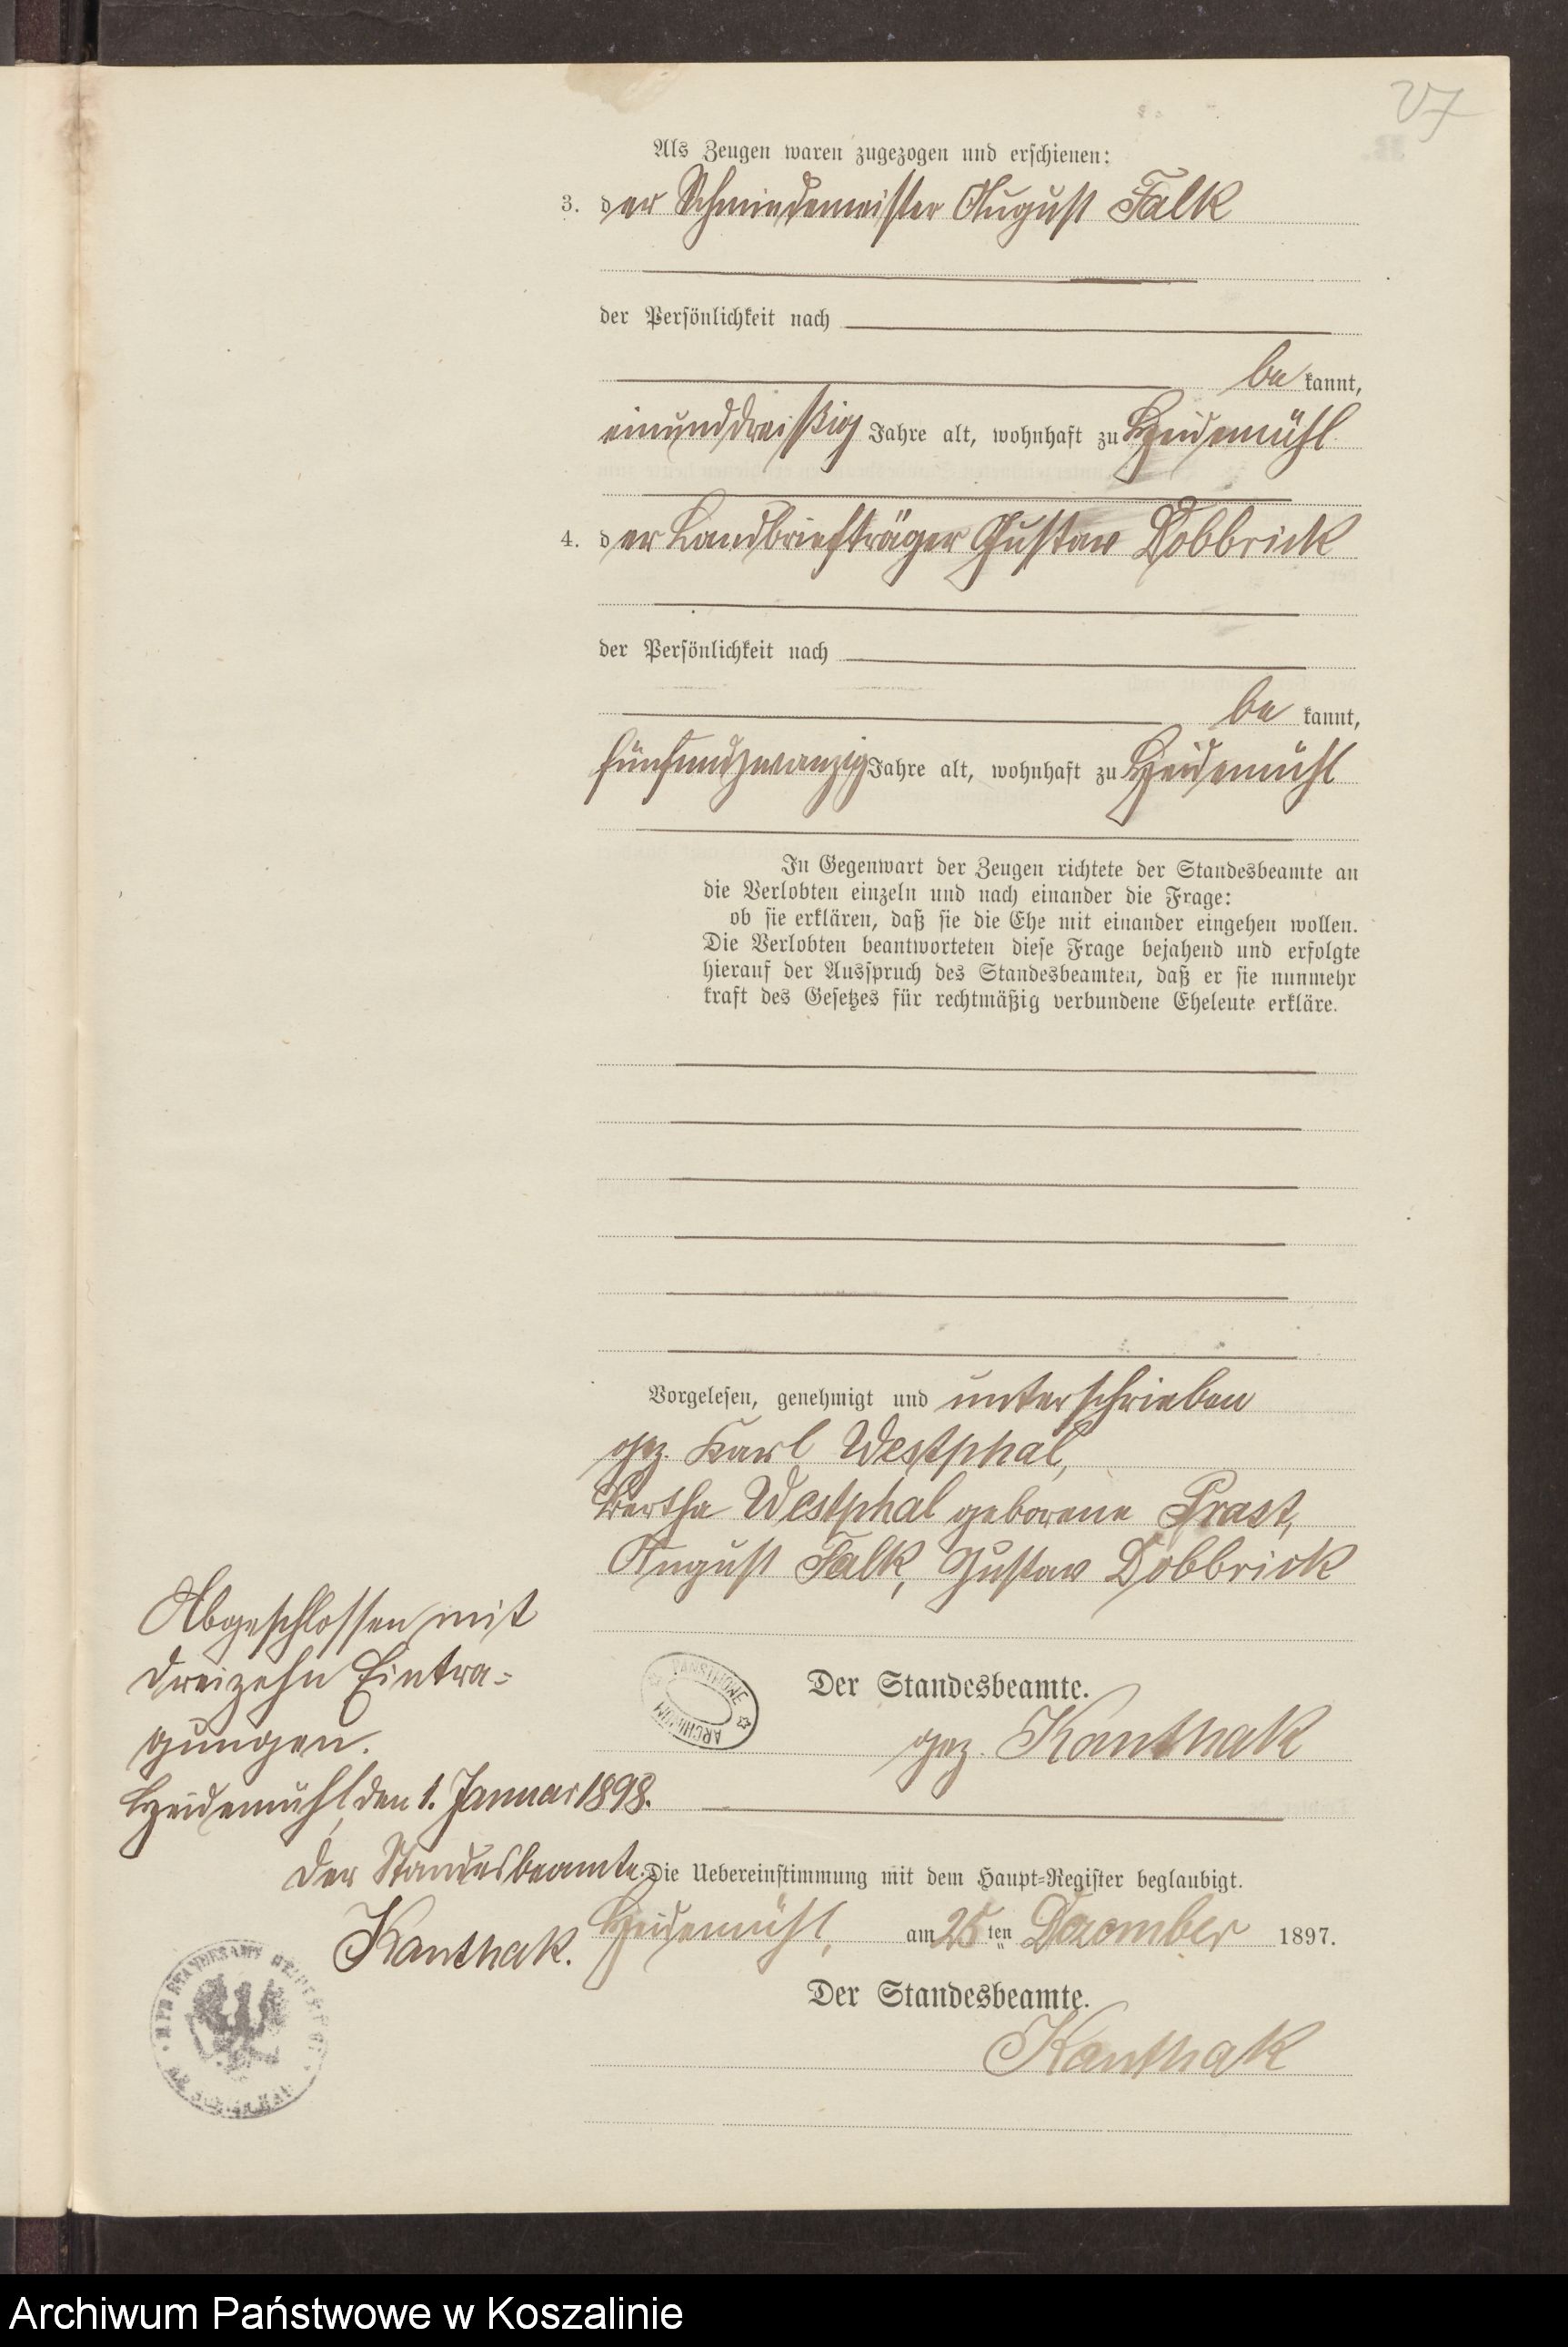 27
Als Zeugen waren zugezogen und erschienen:
3. der Schmiedemeister August Falk
der Persönlichkeit nach
be kannt,
einunddreißig Jahre alt, wohnhaft zu Heidemühl
4. der Landbriefträger Gustav Dobbrick
der Persönlichkeit nach
be kannt,
fünfundzwanzig Jahre alt, wohnhaft zu Heidemühl
In Gegenwart der Zeugen richtete der Standesbeamte an
die Verlobten einzeln und nach einander die Frage:
ob sie erklären, daß sie die Ehe mit einander eingehen wollen.
Die Verlobten beantworteten diese Frage bejahend und erfolgte
hierauf der Ausspruch des Standesbeamten, daß er sie nunmehr
kraft des Gesetzes für rechtmäßig verbundene Eheleute erkläre.
Vorgelesen, genehmigt und unterschrieben
gez. Karl Westphal,
Bertha Westphal geborene Prast,
August Falk, Gustav Dobbrick
Abgeschlossen mit
dreizehn Eintra=
gungen.
Heidemühl, den 1. Januar 1898.
Der Standesbeamte.
Kanthak.
ARCHIWUM PAŃSTWOWE
Der Standesbeamte.
gez. Kanthak
Die Uebereinstimmung mit dem Haupt=Register beglaubigt.
Heidemühl, am 25 ten Dezember 1897.
Der Standesbeamte.
Kanthak
Archiwum Państwowe w Koszalinie